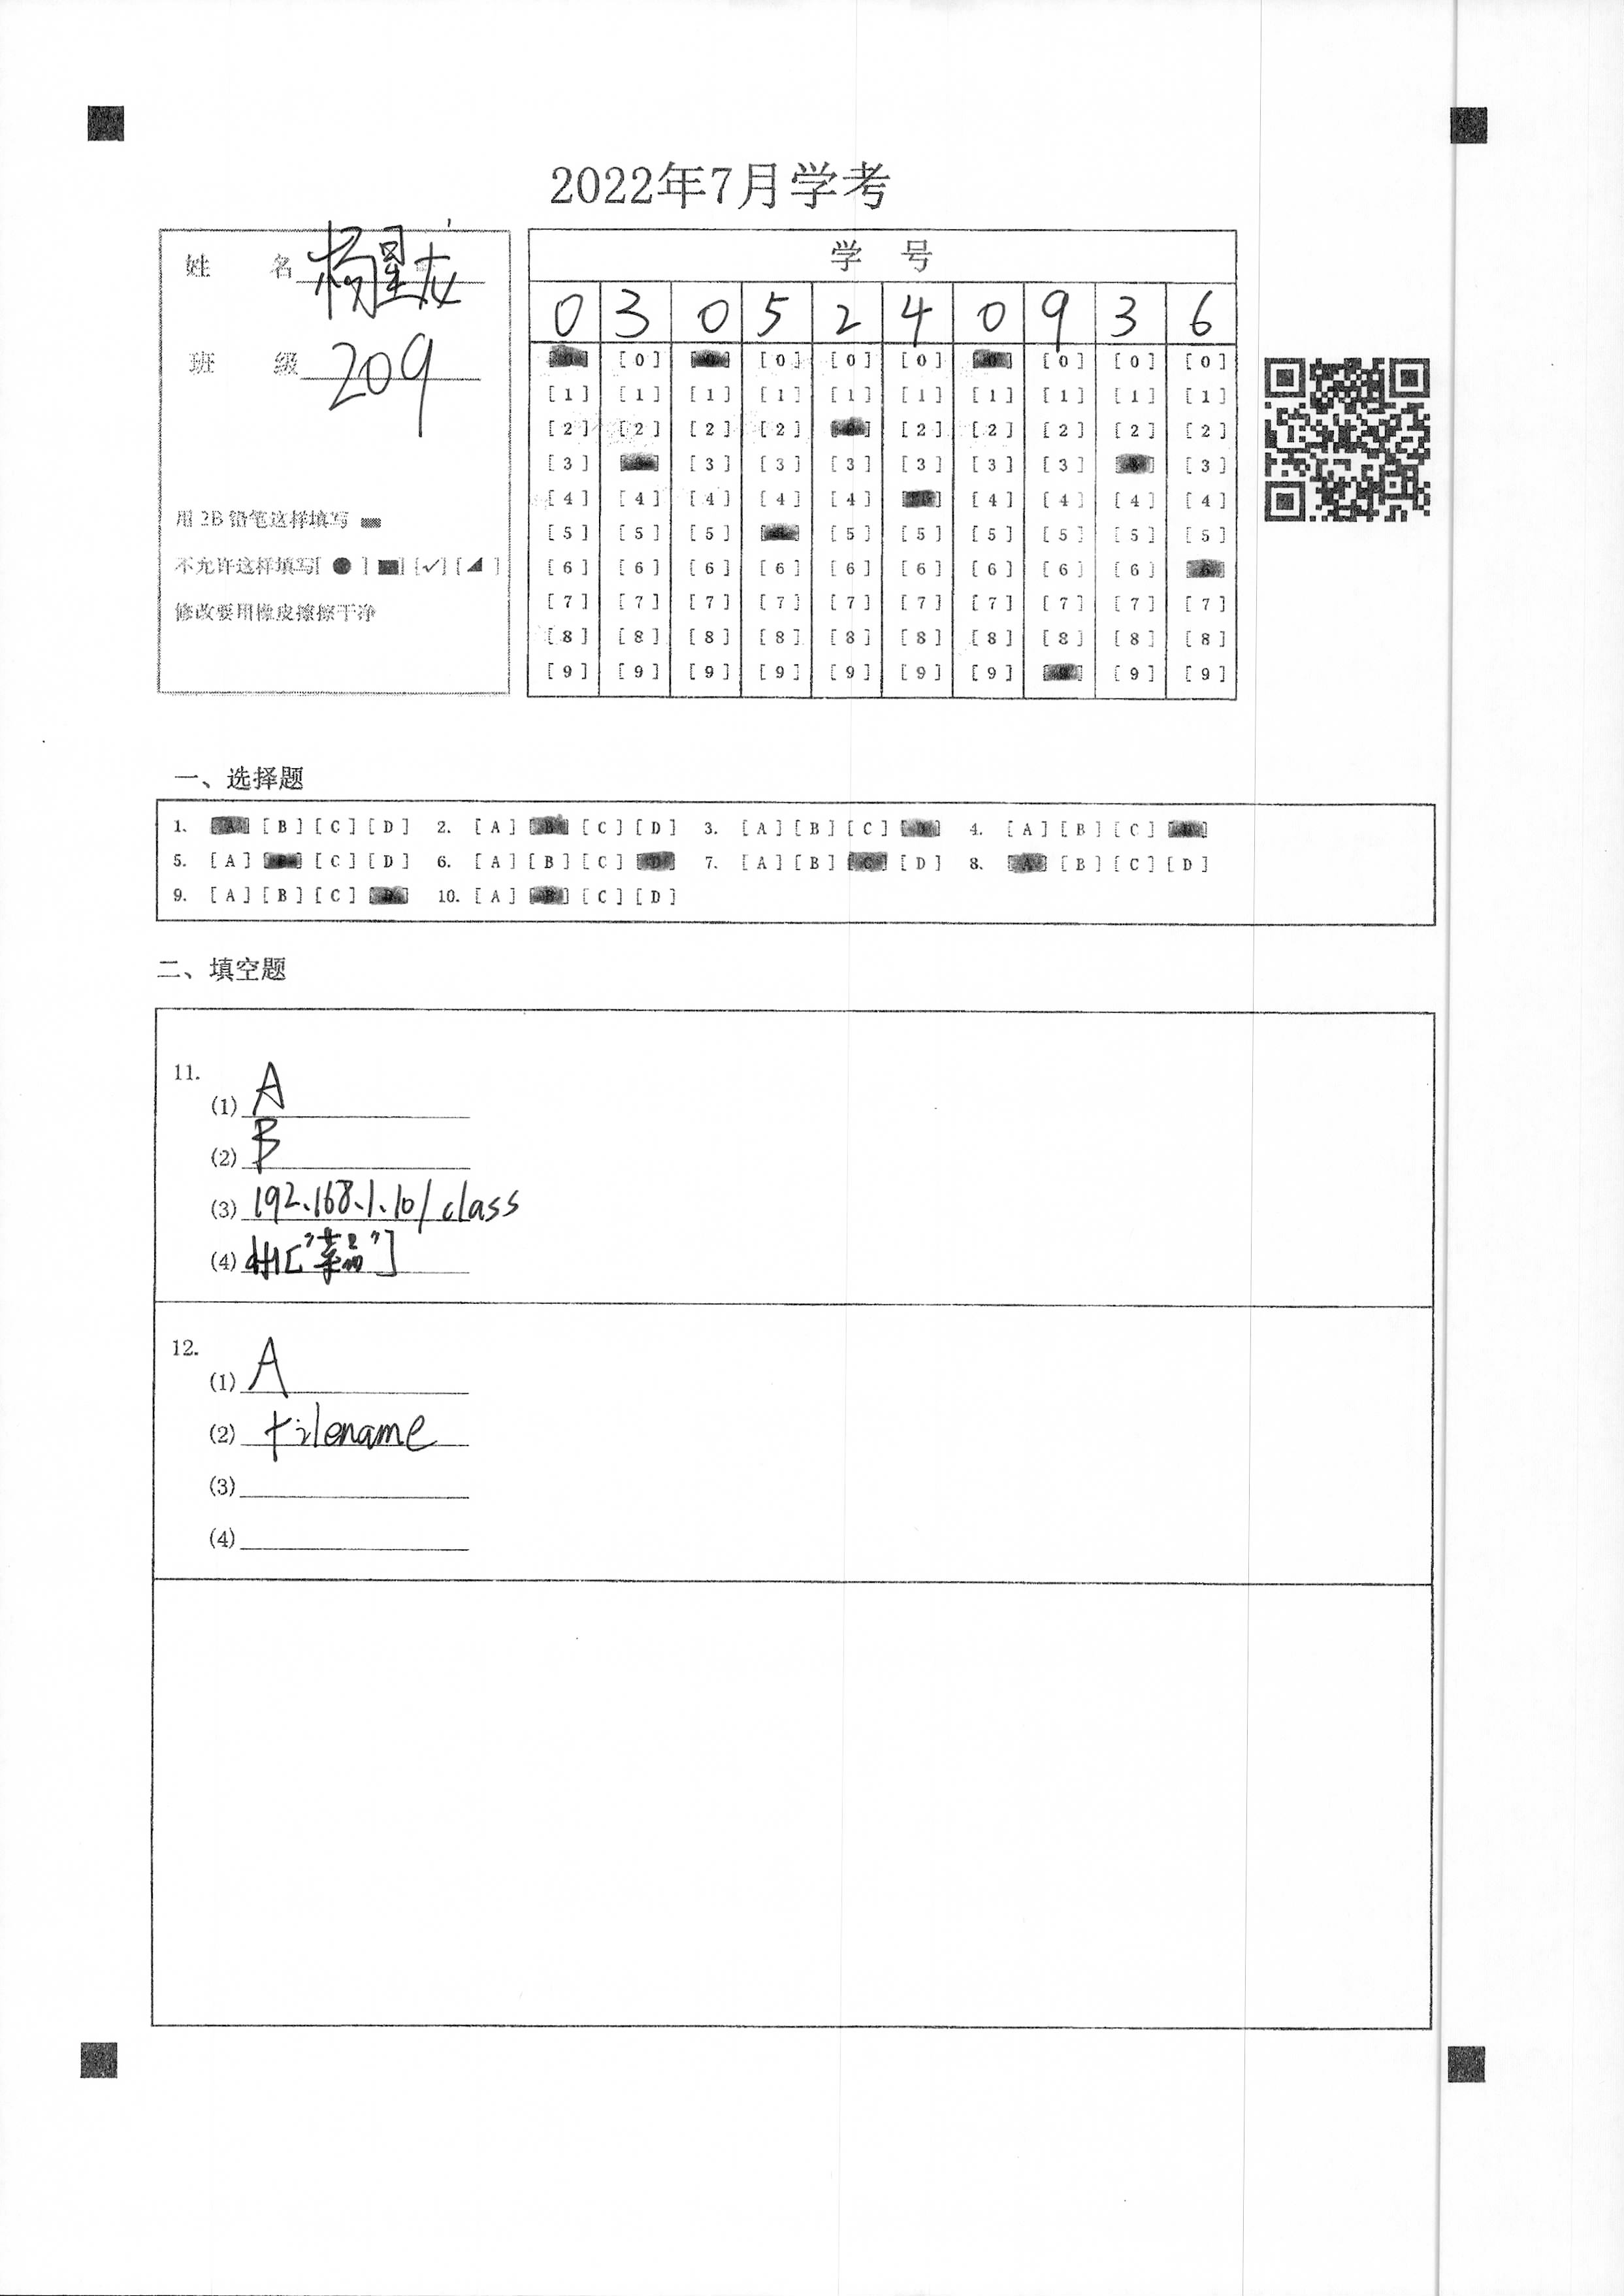 2022年7月学考
姓 名 杨星龙
班 级 209
用2B铅笔这样填写
不允许这样填写[●] [■] [✓] [◢ ]
修改要用橡皮擦擦干净
学 号
0 3 0 5 2 4 0 9 3 6
[0] [0] [0] [0] [0] [0] [0] [0] [0] [0]
[1] [1] [1] [1] [1] [1] [1] [1] [1] [1]
[2] [2] [2] [2] [2] [2] [2] [2] [2] [2]
[3] [3] [3] [3] [3] [3] [3] [3] [3] [3]
[4] [4] [4] [4] [4] [4] [4] [4] [4] [4]
[5] [5] [5] [5] [5] [5] [5] [5] [5] [5]
[6] [6] [6] [6] [6] [6] [6] [6] [6] [6]
[7] [7] [7] [7] [7] [7] [7] [7] [7] [7]
[8] [8] [8] [8] [8] [8] [8] [8] [8] [8]
[9] [9] [9] [9] [9] [9] [9] [9] [9] [9]
一、选择题
1. [A] [B] [C] [D] 2. [A] [B] [C] [D] 3. [A] [B] [C] [D] 4. [A] [B] [C] [D]
5. [A] [B] [C] [D] 6. [A] [B] [C] [D] 7. [A] [B] [C] [D] 8. [A] [B] [C] [D]
9. [A] [B] [C] [D] 10. [A] [B] [C] [D]
二、填空题
11.
(1) A
(2) B
(3) 192.168.1.10/class
(4) df1["菜品"]
12.
(1) A
(2) filename
(3)
(4)